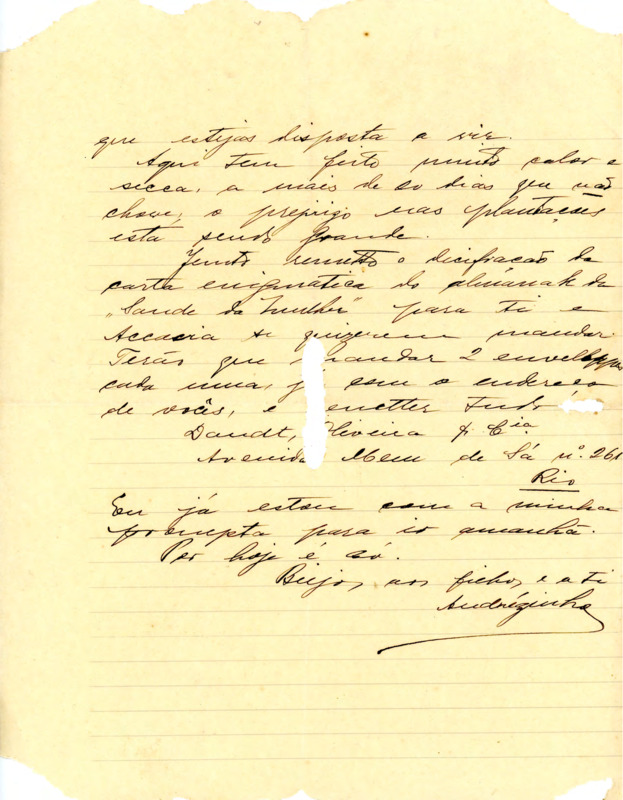 que estejas disposta a vir.
Aqui tem feito muito calor e
secca, a mais de 20 dias que não
chove, o prejuigo nas plantações
está sendo grande.
Junto remetto o dicifração da
carta enigmatica do almának da
"Saude da Mulher" para ti e
Accacia se quizerem mandar.
Terão que mandar 2 enveloppes
cada uma, já com o endereço
de vocês, e remetter tudo
Daudt, Oliveira & Cia
Avenida Mem de Sá nº. 261
Rio
Eu já estou com a minha
prompta para ir amanhã.
Por hoje é só.
Beijos aos filhos e a ti
Andrézinho